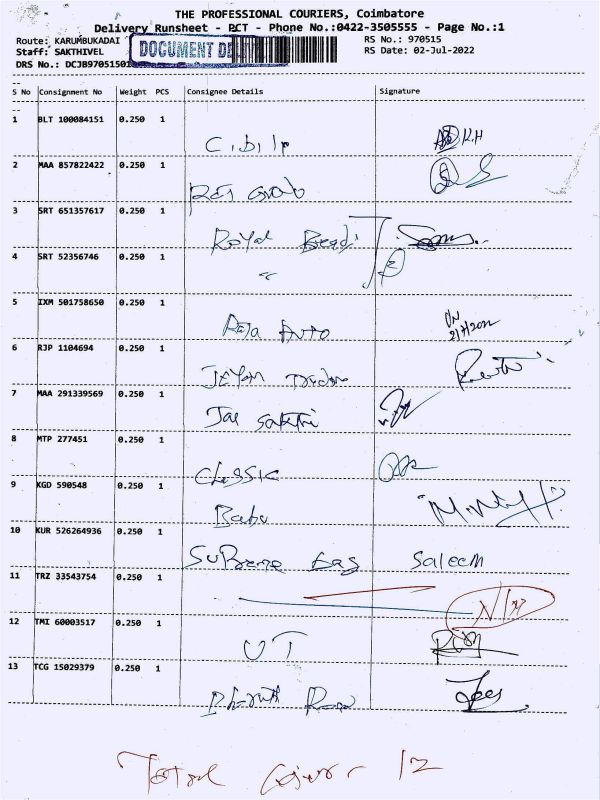 THE PROFESSIONAL COURIERS, Coimbatore
Delivery Runsheet - PCT - Phone No.:0422-3505555 - Page No.:1
Route: KARUMBUKADAI
RS No.: 970515
Staff: SAKTHIVEL
DOCUMENT
RS Date: 02-Jul-2022
DRS No.: DCJB97051501
S No Consignment No Weight PCS Consignee Details Signature
1 BLT 100084151 0.250 1
2 MAA 857822422 0.250 1
3 SRT 651357617 0.250 1
Royal
4 SRT 52356746 0.250 1
"
5 IXM 501758650 0.250 1
Raja Auto
2/7/2022
6 RJP 1104694 0.250 1
7 MAA 291339569 0.250 1
Jai Sakthi
8 MTP 277451 0.250 1
Classic
9 KGD 590548 0.250 1
Babu
10 KUR 526264936 0.250 1
Supreme Bags Saleem
11 TRZ 33543754 0.250 1
12 TMI 60003517 0.250 1
UT
13 TCG 15029379 0.250 1
Bharath
Total 12